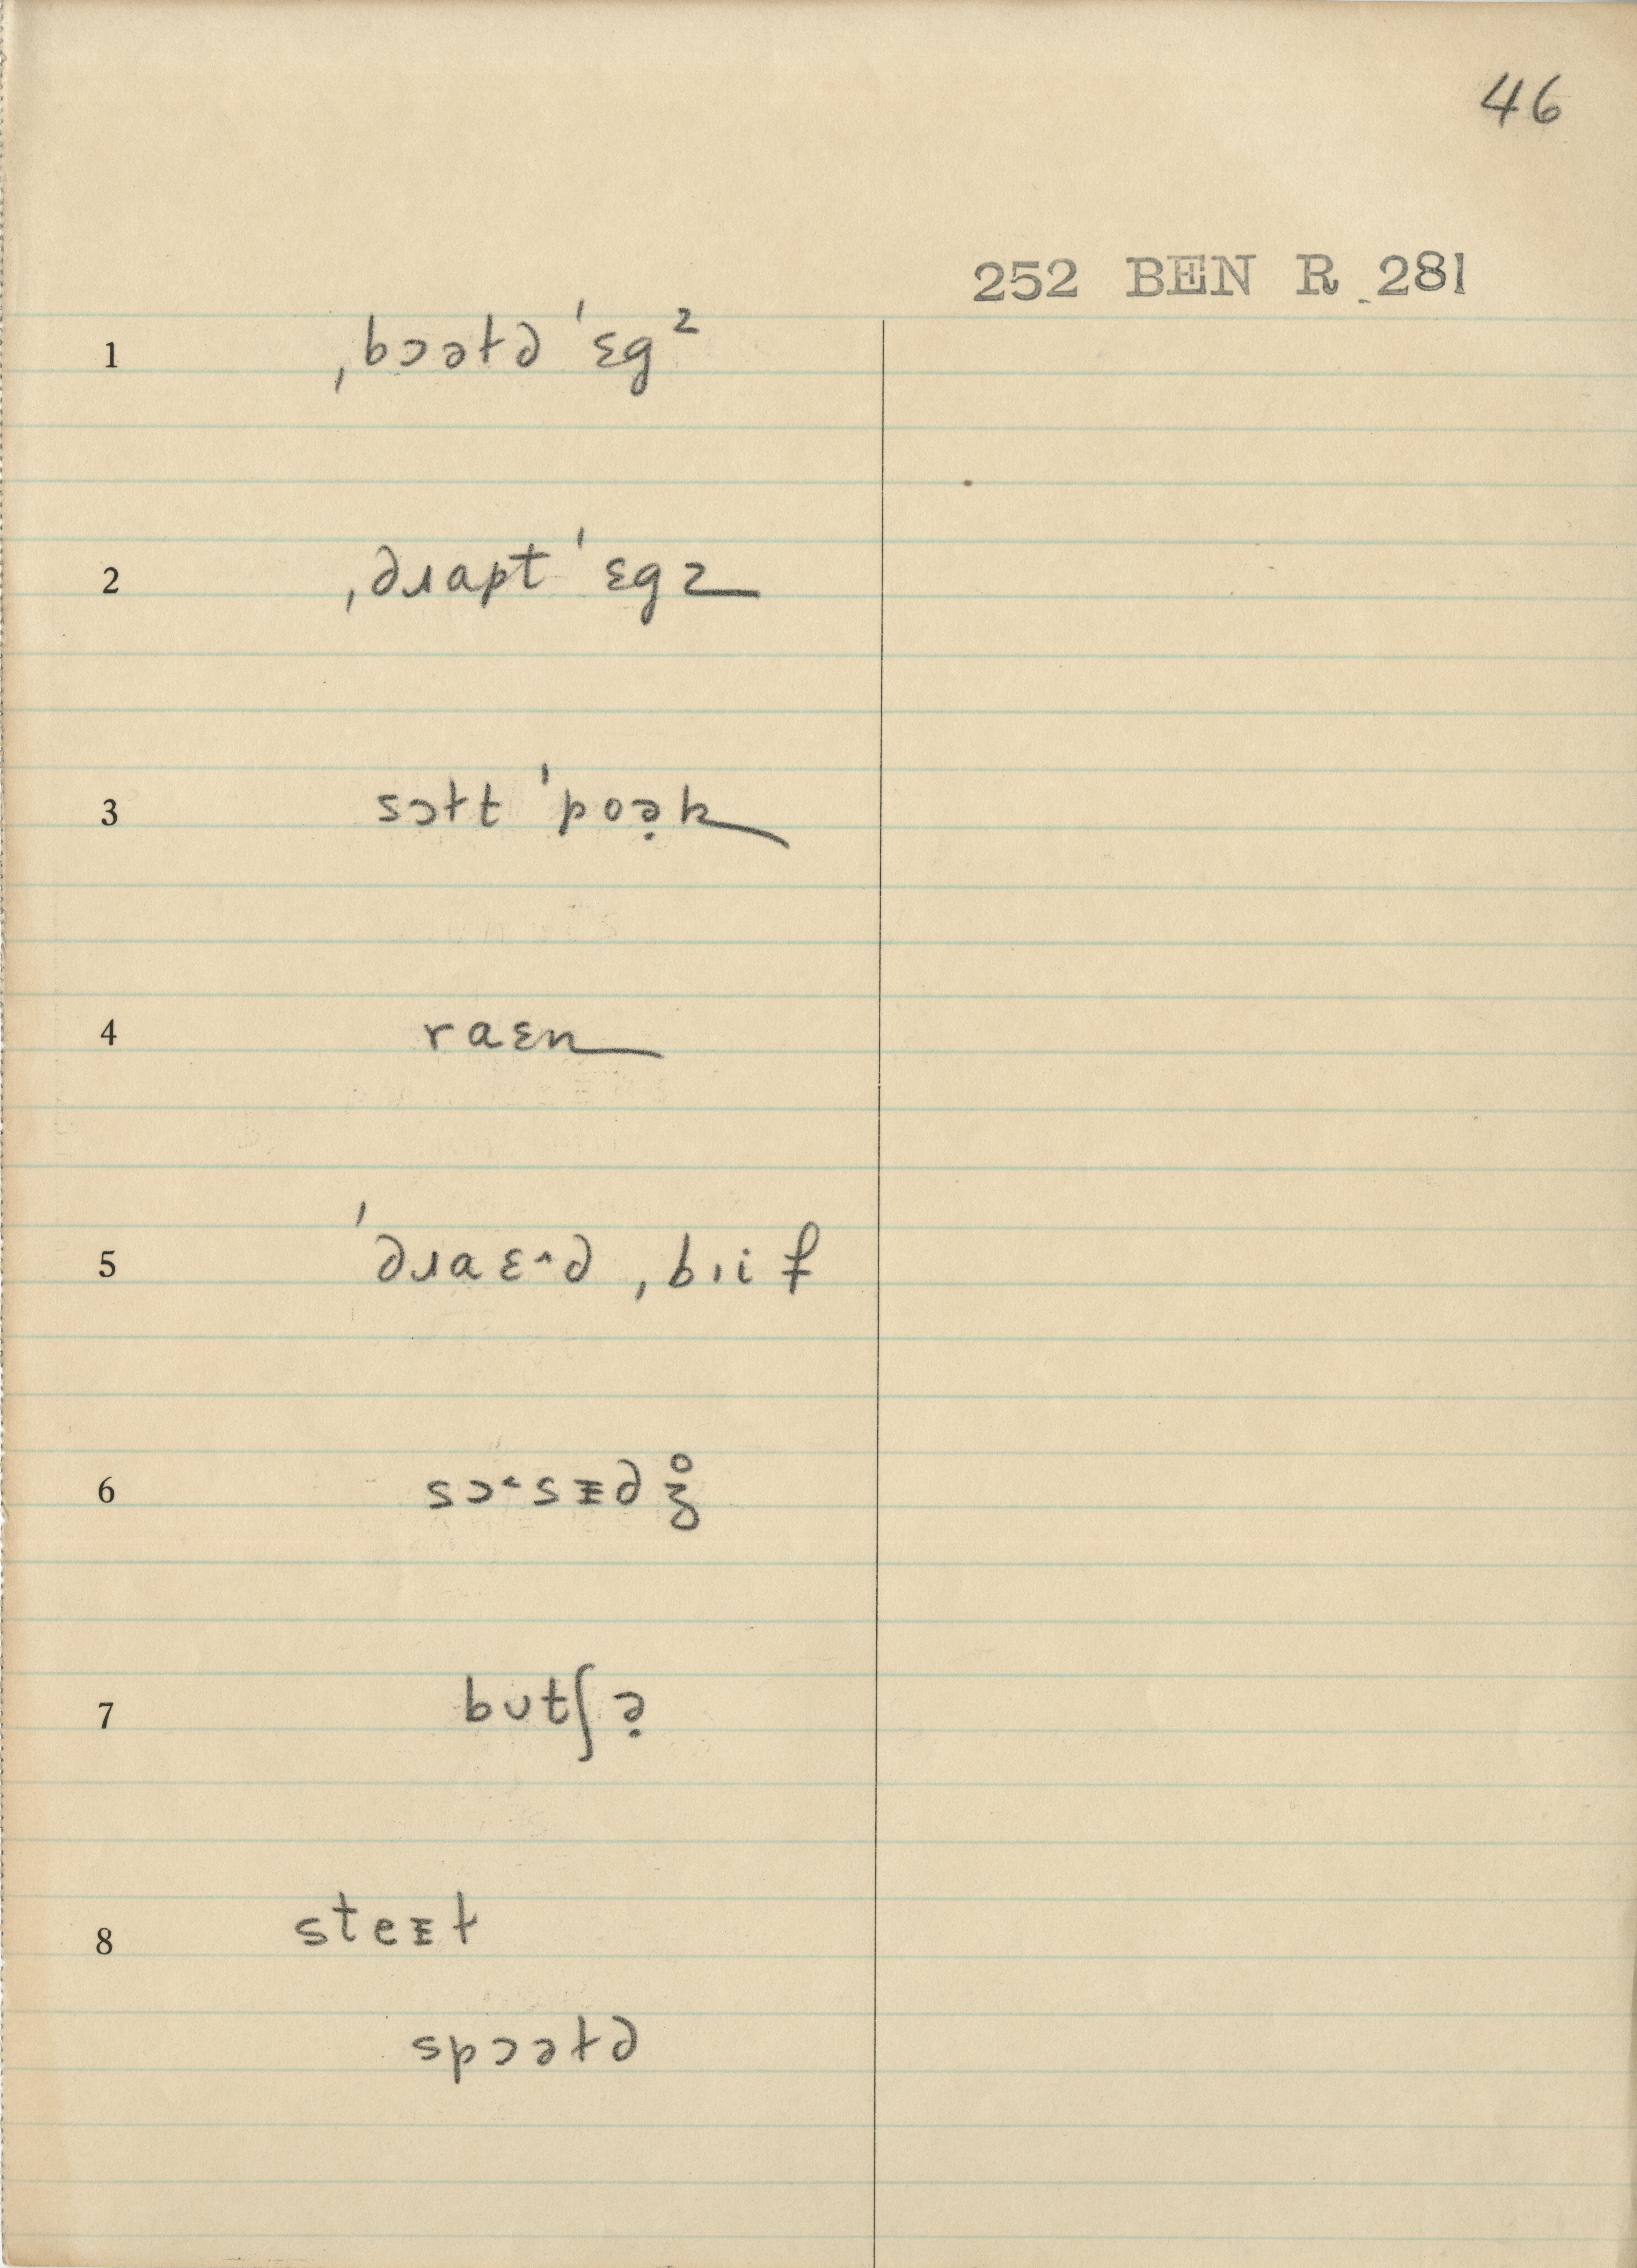 46
252 BEN R 281
1 ˌbɔətə ˈɛg ᶻ
2 ˌəɹapt ˈɛgz
3 sɔtt ˈpoə̣k
4 raɛn
5 ˈəɹaɛ^ə ˌbıif
6 sɔ˂sɪə z̥
7 butʃə̣
8 steɪt
spɔətə